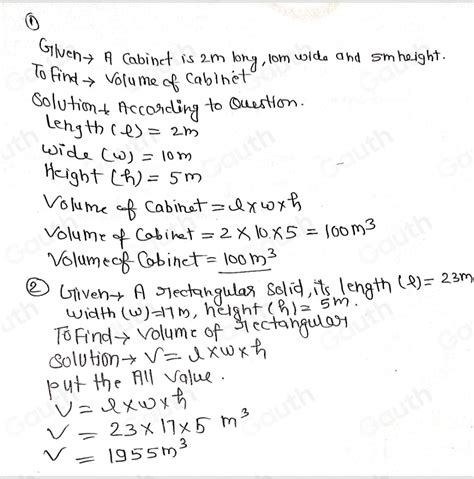 ①
Given→ A Cabinet is 2m long, 10m wide and 5m height.
To Find → Volume of Cabinet
Solution→ According to Question.
Length (l) = 2m
wide (w) = 10m
Height (h) = 5m
Volume of Cabinet = l×w×h
Volume of Cabinet = 2×10×5 = 100m³
Volume of Cabinet = 100m³
② Given→ A rectangular Solid, its length (l) = 23m
width (w)=17m, height (h) = 5m.
To Find→ Volume of rectangular
Solution→ V= l×w×h
put the All value.
V = l×w×h
V = 23×17×5 m³
V = 1955m³